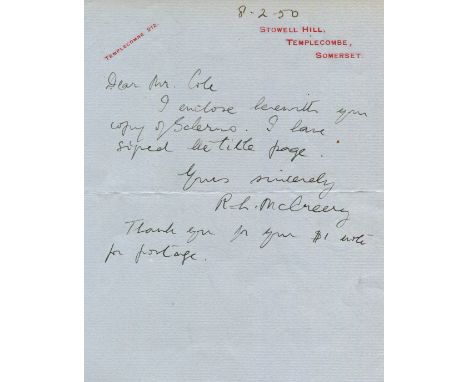 8-2-50
TEMPLECOMBE 212.
STOWELL HILL,
TEMPLECOMBE,
SOMERSET.
Dear Mr. Cole
I enclose herewith your
copy of Salerno. I have
signed the title page.
Yours sincerely
R-L. McCreery
Thank you for your $1 note
for postage.